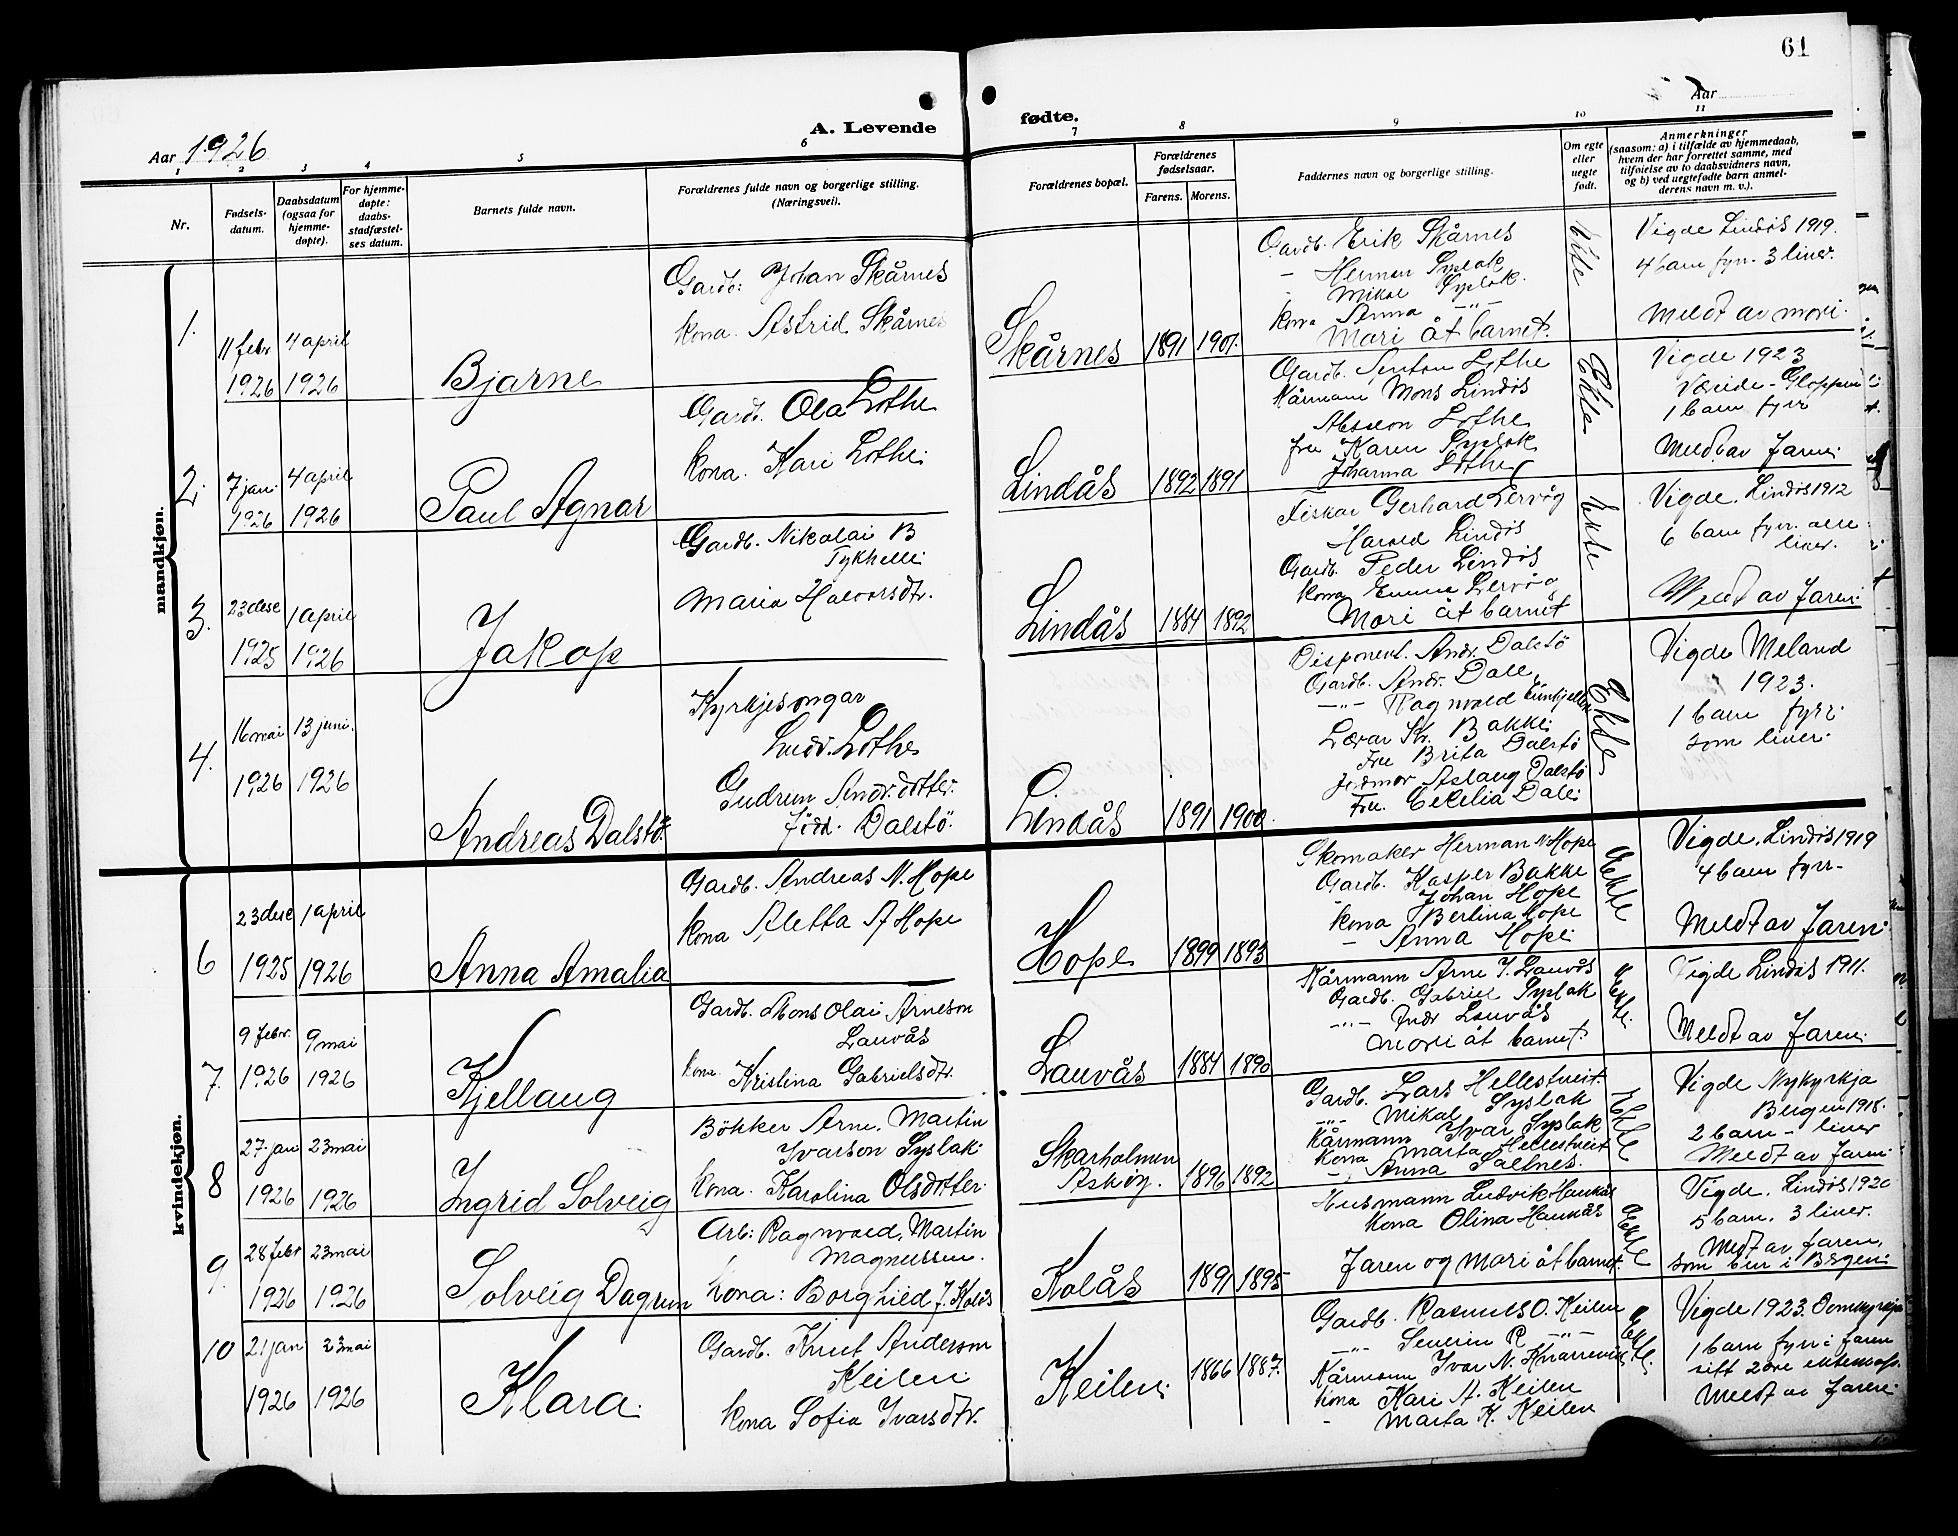 61
Aar 1926
A. Levende
fødte.
Aar
1
2
3
4
5
6
7
8
9
10
11
Nr.
Fødsels-
datum.
Daabsdatum
(ogsaa for
hjemme-
døpte).
For hjemme-
døpte:
daabs-
stadfæstel-
ses datum.
Barnets fulde navn.
Forældrenes fulde navn og borgerlige stilling.
(Næringsvei).
Forældrenes bopæl.
Forældrenes
fødselsaar.
Farens.
Morens.
Faddernes navn og borgerlige stilling.
Om egte
eller
uegte
født.
Anmerkninger
(saasom: a) i tilfælde av hjemmedaab,
hvem der har forrettet samme, med
tilføielse av to daabsvidners navn,
og b) ved uegtefødte barn anmel-
derens navn m. v.).
mandkjøn.
1.
11 febr
1926
4 april
1926
Bjarne
Gardb: Johan Skårnes
kona. Astrid Skårnes
Skårnes
1891
1901.
Gardb. Erik Skårnes
- Herman Syslak
- Mikal Syslak.
kona Anna -"-
Mori åt barnet.
Ekte
Vigde Lindås 1919.
4 barn fyrr. 3 liver.
Meldt av mori.
2.
7 jan.
1926
4 april
1926
Paul Agnar
Gardb. Ola Lothe
kona. Kari Lothe.
Lindås
1892
1891
Gardb. Anton Lothe
Kårmann Mons Lindås
Absalon Lothe
fru Karen Syslak
Johanna Lothe
Ekte
Vigde 1923
Vereide - Gloppen
1 barn fyrr
Meldt av faren.
3.
23 dese
1925
1 april
1926
Jakop
Gardb. Nikolai B
Tykhelle
Maria Halvorsdtr.
Lindås
1884
1892
Fiskar Gerhard Lervåg
Harald Lindås
Gardb. Peder Lindås
kona Emma Lervåg
Mori åt barnet
Ekte
Vigde. Lindås 1912
6 barn fyrr. alle
liver.
Meldt av faren.
4.
16 mai
1926
13 juni.
1926
Andreas Dalstö.
Kyrkjesongar
Ludv. Lothe
Gudrun Andr. dotter.
född. Dalstö.
Lindås
1891
1900.
Disponent. Andr. Dalstö
Gardb. Andr. Dale,
-"- Ragnvald
Lærar Bakke.
Fru Brita Dalstö
Jordmor Aslaug Dalstö
Fru. Cecilia Dale.
Ekte
Vigde Meland
1923.
1 barn fyrr.
som liver.
kvindekjøn.
6
23 dese
1925
1 april
1926
Anna Amalia
Gardb. Andreas N. Hope
kona Aletta A Hope
Hope
1899
1893
Skomaker Herman N Hope
Gardb. Kasper Bakke
Johan Hope
kona Berlina Hope
- Anna Hope.
Ekte
Vigde. Lindås 1919
4 barn fyrr-
Meldt av faren.
7.
9 febr.
1926
9 mai
1926
Kjellaug
Gardb. Mons Olai Arneson
Lauvås
kona. Kristina Gabrielsdtr.
Lauvås
1884
1890
Kårmann Arne J. Lauvås
Gardb. Gabriel Syslak
-"- Andr Lauvås
Mori åt barnet
Ekte.
Vigde Lindås 1911.
Meldt av faren.
8
27 jan
1926
23 mai
1926
Ingrid Solveig
Bökker Arne. Martin
Ivarson Syslak.
kona. Karolina Olsdotter.
Skarholmen
Askøy.
1896
1892
Gardb. Lars Hellestveit.
-"- Mikal Syslak
Kårmann Ivar Syslak
kona Marta Hellestveit
- Anna Saltnes.
Ekte
Vigde Nykyrkja
Bergen 1918.
2 barn - liver
Meldt av faren.
9.
28 febr
1926
23 mai
1926
Solveig Dagrun
Arb: Ragnvald. Martin
Magnussen.
kona: Borghild J. Kolås
Kolås
1891
1895
Husmann Ludvik Haukås
Kona Olina Haukås
Faren og mori åt barnet.
Ekte
Vigde. Lindås 1920
5 barn. 3 liver.
Meldt av faren,
som bur i Bergen.
10
21 jan
1926
23 mai
1926
Klara.
Gardb. Knut Anderson
Keilen
kona Sofia Ivarsdtr.
Keilen.
1866
1887.
Gardb. Rasmus O. Keilen
-"- Severin R -"-
Kårmann Ivar N. Knarrevik
kona Kari A. Keilen
- Marta K. Keilen
Ekte.
Vigde 1923. Domkyrkja
1 barn fyrr: faren
gift 2dre
Meldt av faren.